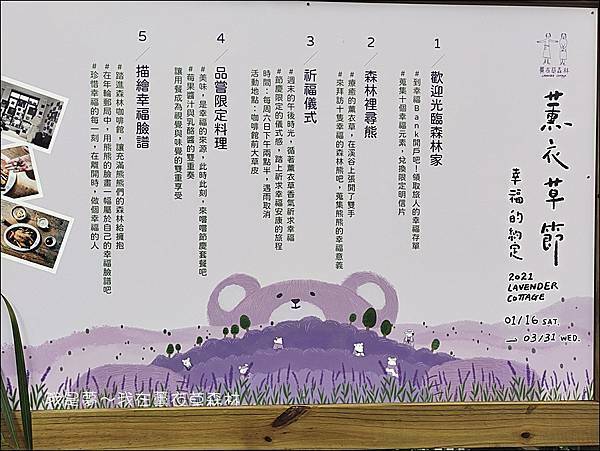 薰衣草森林
薰衣草節
幸福的約定
2021
LAVENDER
COTTAGE
01/16 SAT.
03/31 WED.
1
歡迎光臨森林家
#到幸福Bank開戶吧！領取旅人的幸福存單
#蒐集十個幸福元素，兌換限定明信片
2
森林裡尋熊
#療癒的薰衣草，在溪谷上張開了雙手
#來拜訪十隻幸福的森林熊吧，蒐集熊熊的幸福意義
3
祈福儀式
#週末的午後時光，循著薰衣草香氣祈求幸福
#節慶限定的儀式感，踏上祈求幸福安康的旅程
時間：每周六日下午兩點半，遇雨取消
活動地點：咖啡館前大草皮
4
品嘗限定料理
#美味，是幸福的來源，此時此刻，來嚐嚐節慶套餐吧
#莓果醬汁與乳酪醬的雙重奏
讓用餐成為視覺與味覺的雙重享受
5
描繪幸福臉譜
#踏進森林咖啡館，讓充滿熊熊們的森林給擁抱
#在年輪郵局中，用熊熊的臉畫一幅屬於自己的幸福臉譜吧
#珍惜幸福的每一刻，在離開時，做個幸福的人
我在薰衣草森林